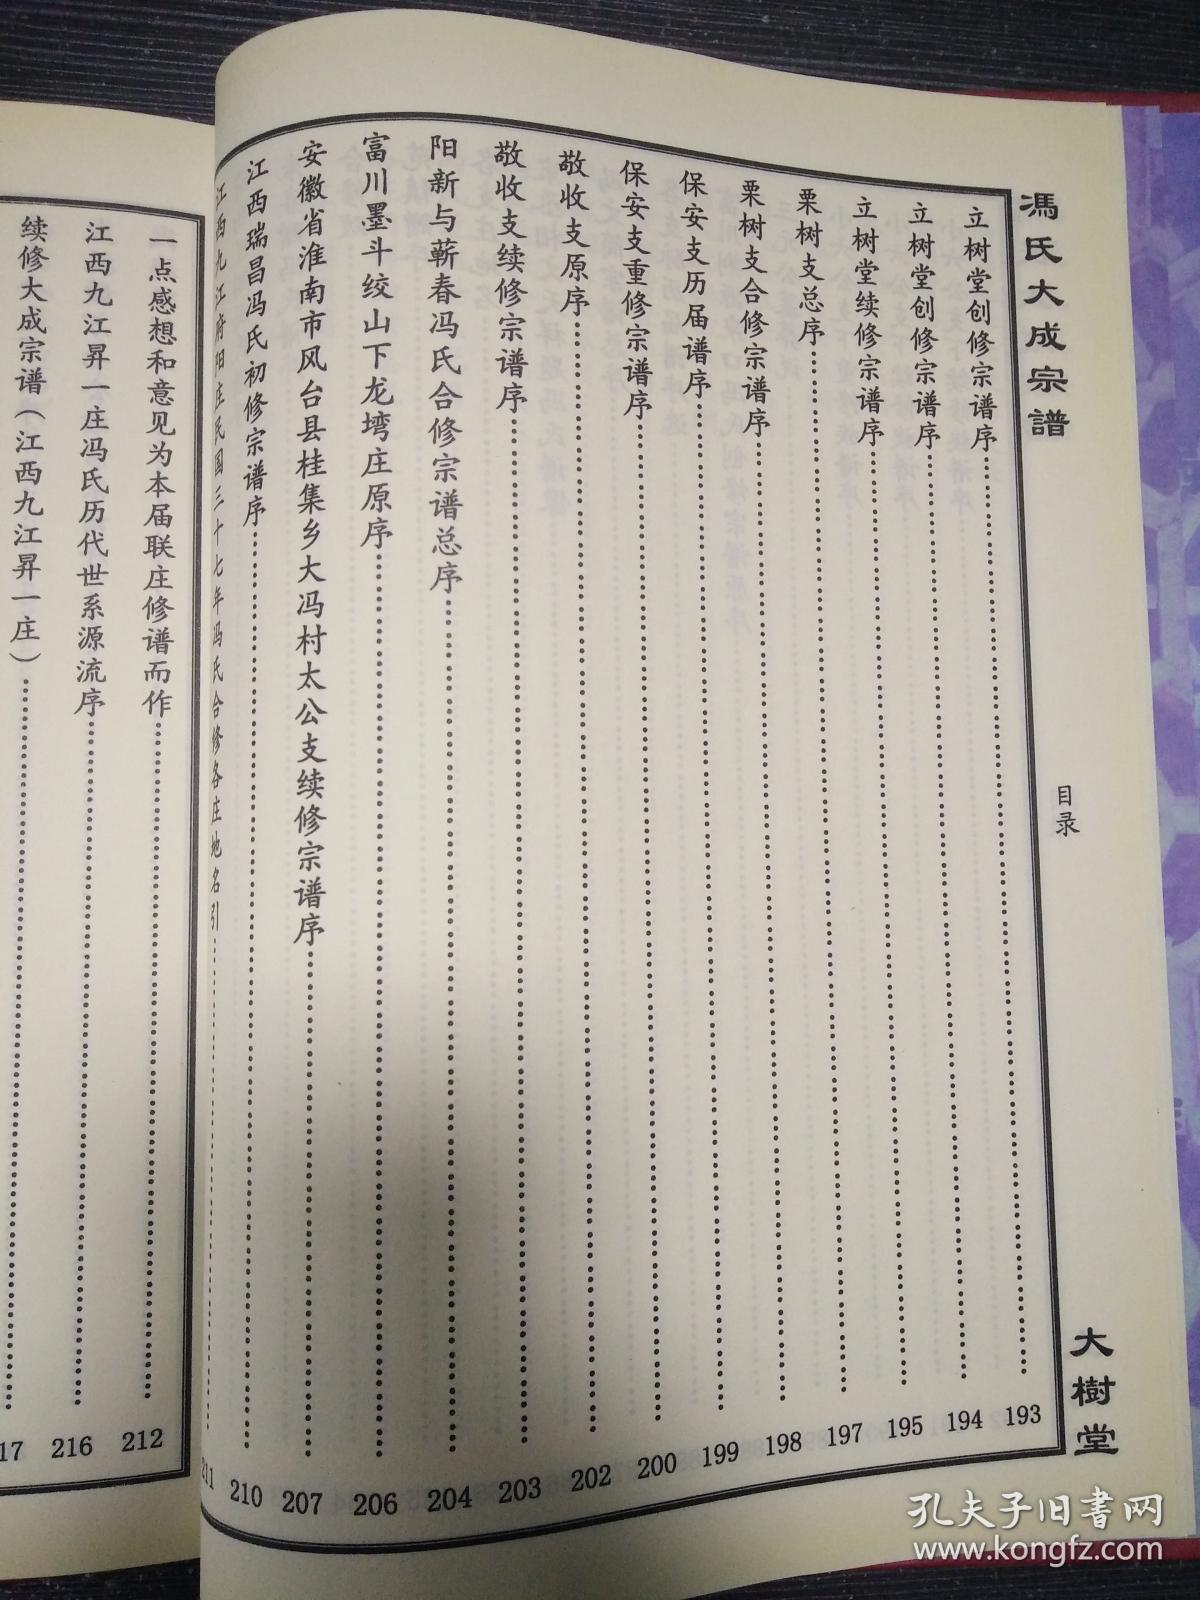 馮氏大成宗譜
目录
大樹堂
立树堂创修宗谱序……193
立树堂创修宗谱序……194
立树堂续修宗谱序……195
栗树支总序……197
栗树支合修宗谱序……198
保安支历届谱序……199
保安支重修宗谱序……200
敬收支原序……202
敬收支续修宗谱序……203
阳新与蕲春冯氏合修宗谱总序……204
富川墨斗绞山下龙塆庄原序……206
安徽省淮南市风台县桂集乡大冯村太公支续修宗谱序……207
江西瑞昌冯氏初修宗谱序……210
江西九江府阳庄民国三十七年冯氏合修各庄地名引……211
一点感想和意见为本届联庄修谱而作……212
江西九江昇一庄冯氏历代世系源流序……216
续修大成宗谱（江西九江昇一庄）……17
孔夫子旧书网
www.kongfz.com